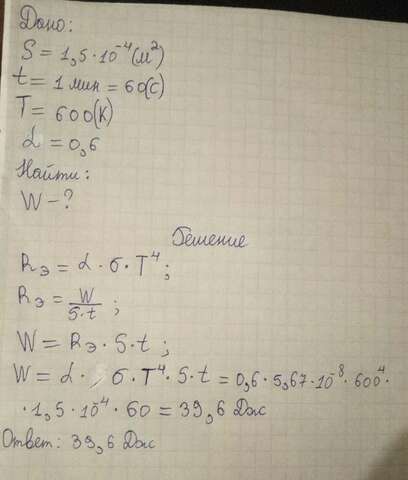 Дано:
S = 1,5·10⁻⁴(м²)
t = 1 мин = 60(с)
T = 600(К)
α = 0,6
Найти:
W - ?
Решение
Rэ = α · σ · T⁴ ;
Rэ = W/S·t ;
W = Rэ · S · t ;
W = α · σ · T⁴ · S · t = 0,6 · 5,67 · 10⁻⁸ · 600⁴ ·
· 1,5 · 10⁻⁴ · 60 = 39,6 Дж
Ответ: 39,6 Дж